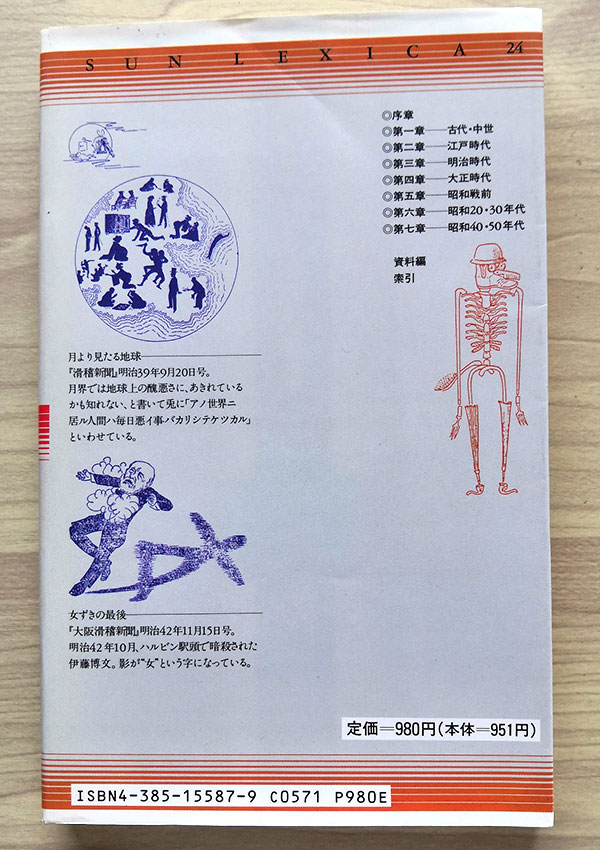 SUN LEXICA 24
◎序章
◎第一章──古代・中世
◎第二章──江戸時代
◎第三章──明治時代
◎第四章──大正時代
◎第五章──昭和戦前
◎第六章──昭和20・30年代
◎第七章──昭和40・50年代
資料編
索引
月より見たる地球
『滑稽新聞』明治39年9月20日号。
月界では地球上の醜悪さに、あきれている
かも知れない、と書いて兎に「アノ世界ニ
居ル人間ハ毎日悪イ事バカリシテケツカル」
といわせている。
女ずきの最後
『大阪滑稽新聞』明治42年11月15日号。
明治42年10月、ハルビン駅頭で暗殺された
伊藤博文。影が“女”という字になっている。
定価=980円(本体=951円)
ISBN4-385-15587-9 C0571 P980E